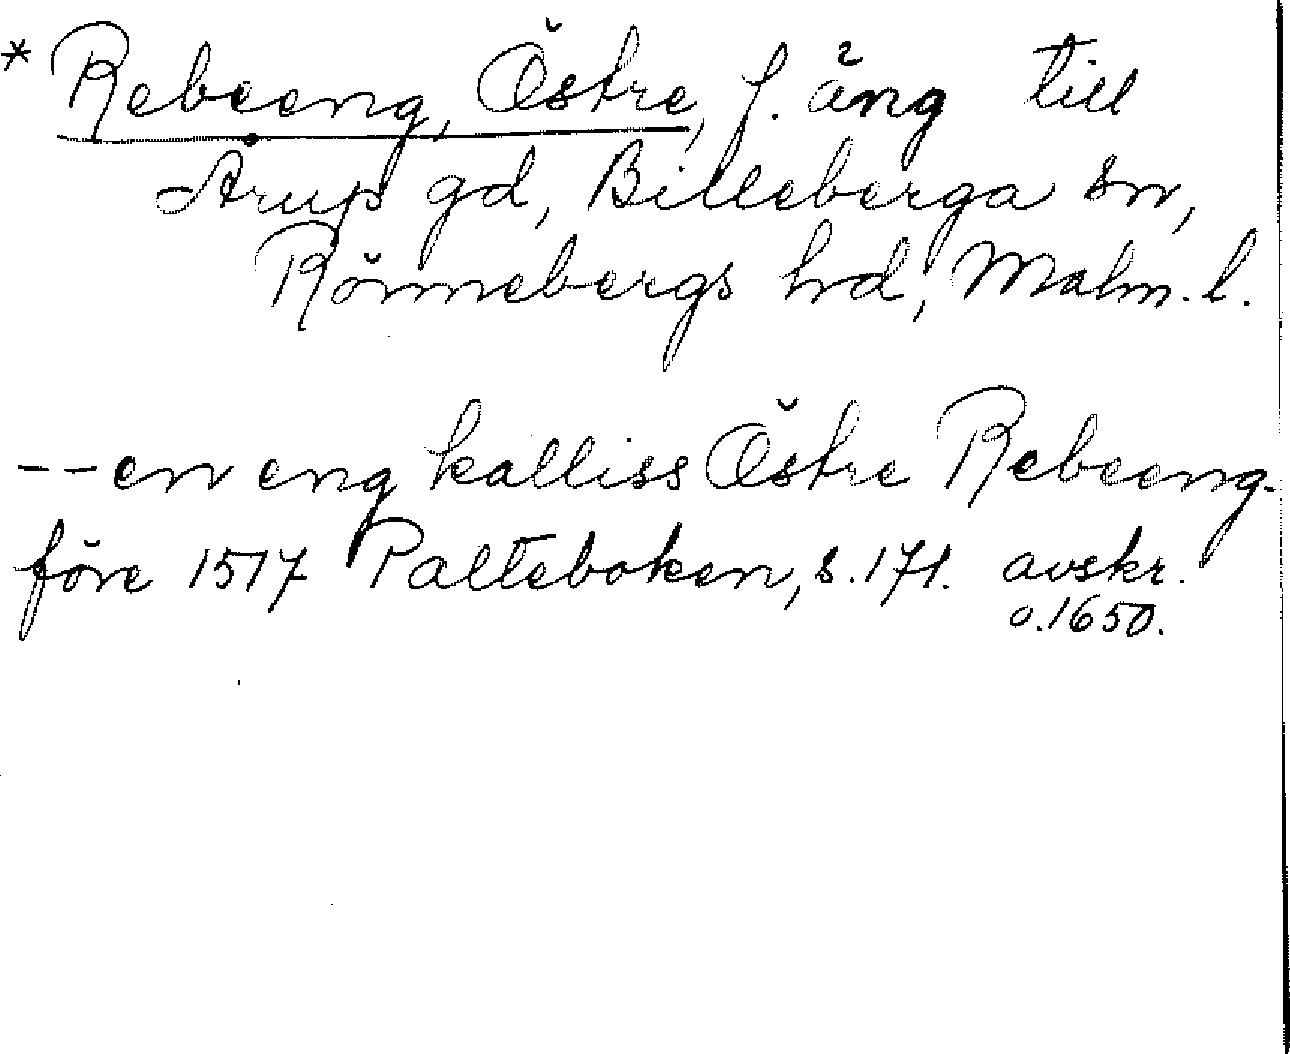 * Rebeeng, Östre, f. äng till
Årup gd, Billeberga sn,
Rönnebergs hd, Malm. l.
-- en eng kalliss Östre Rebeeng.
före 1517 Palteboken, s. 171. avskr.
o. 1650.